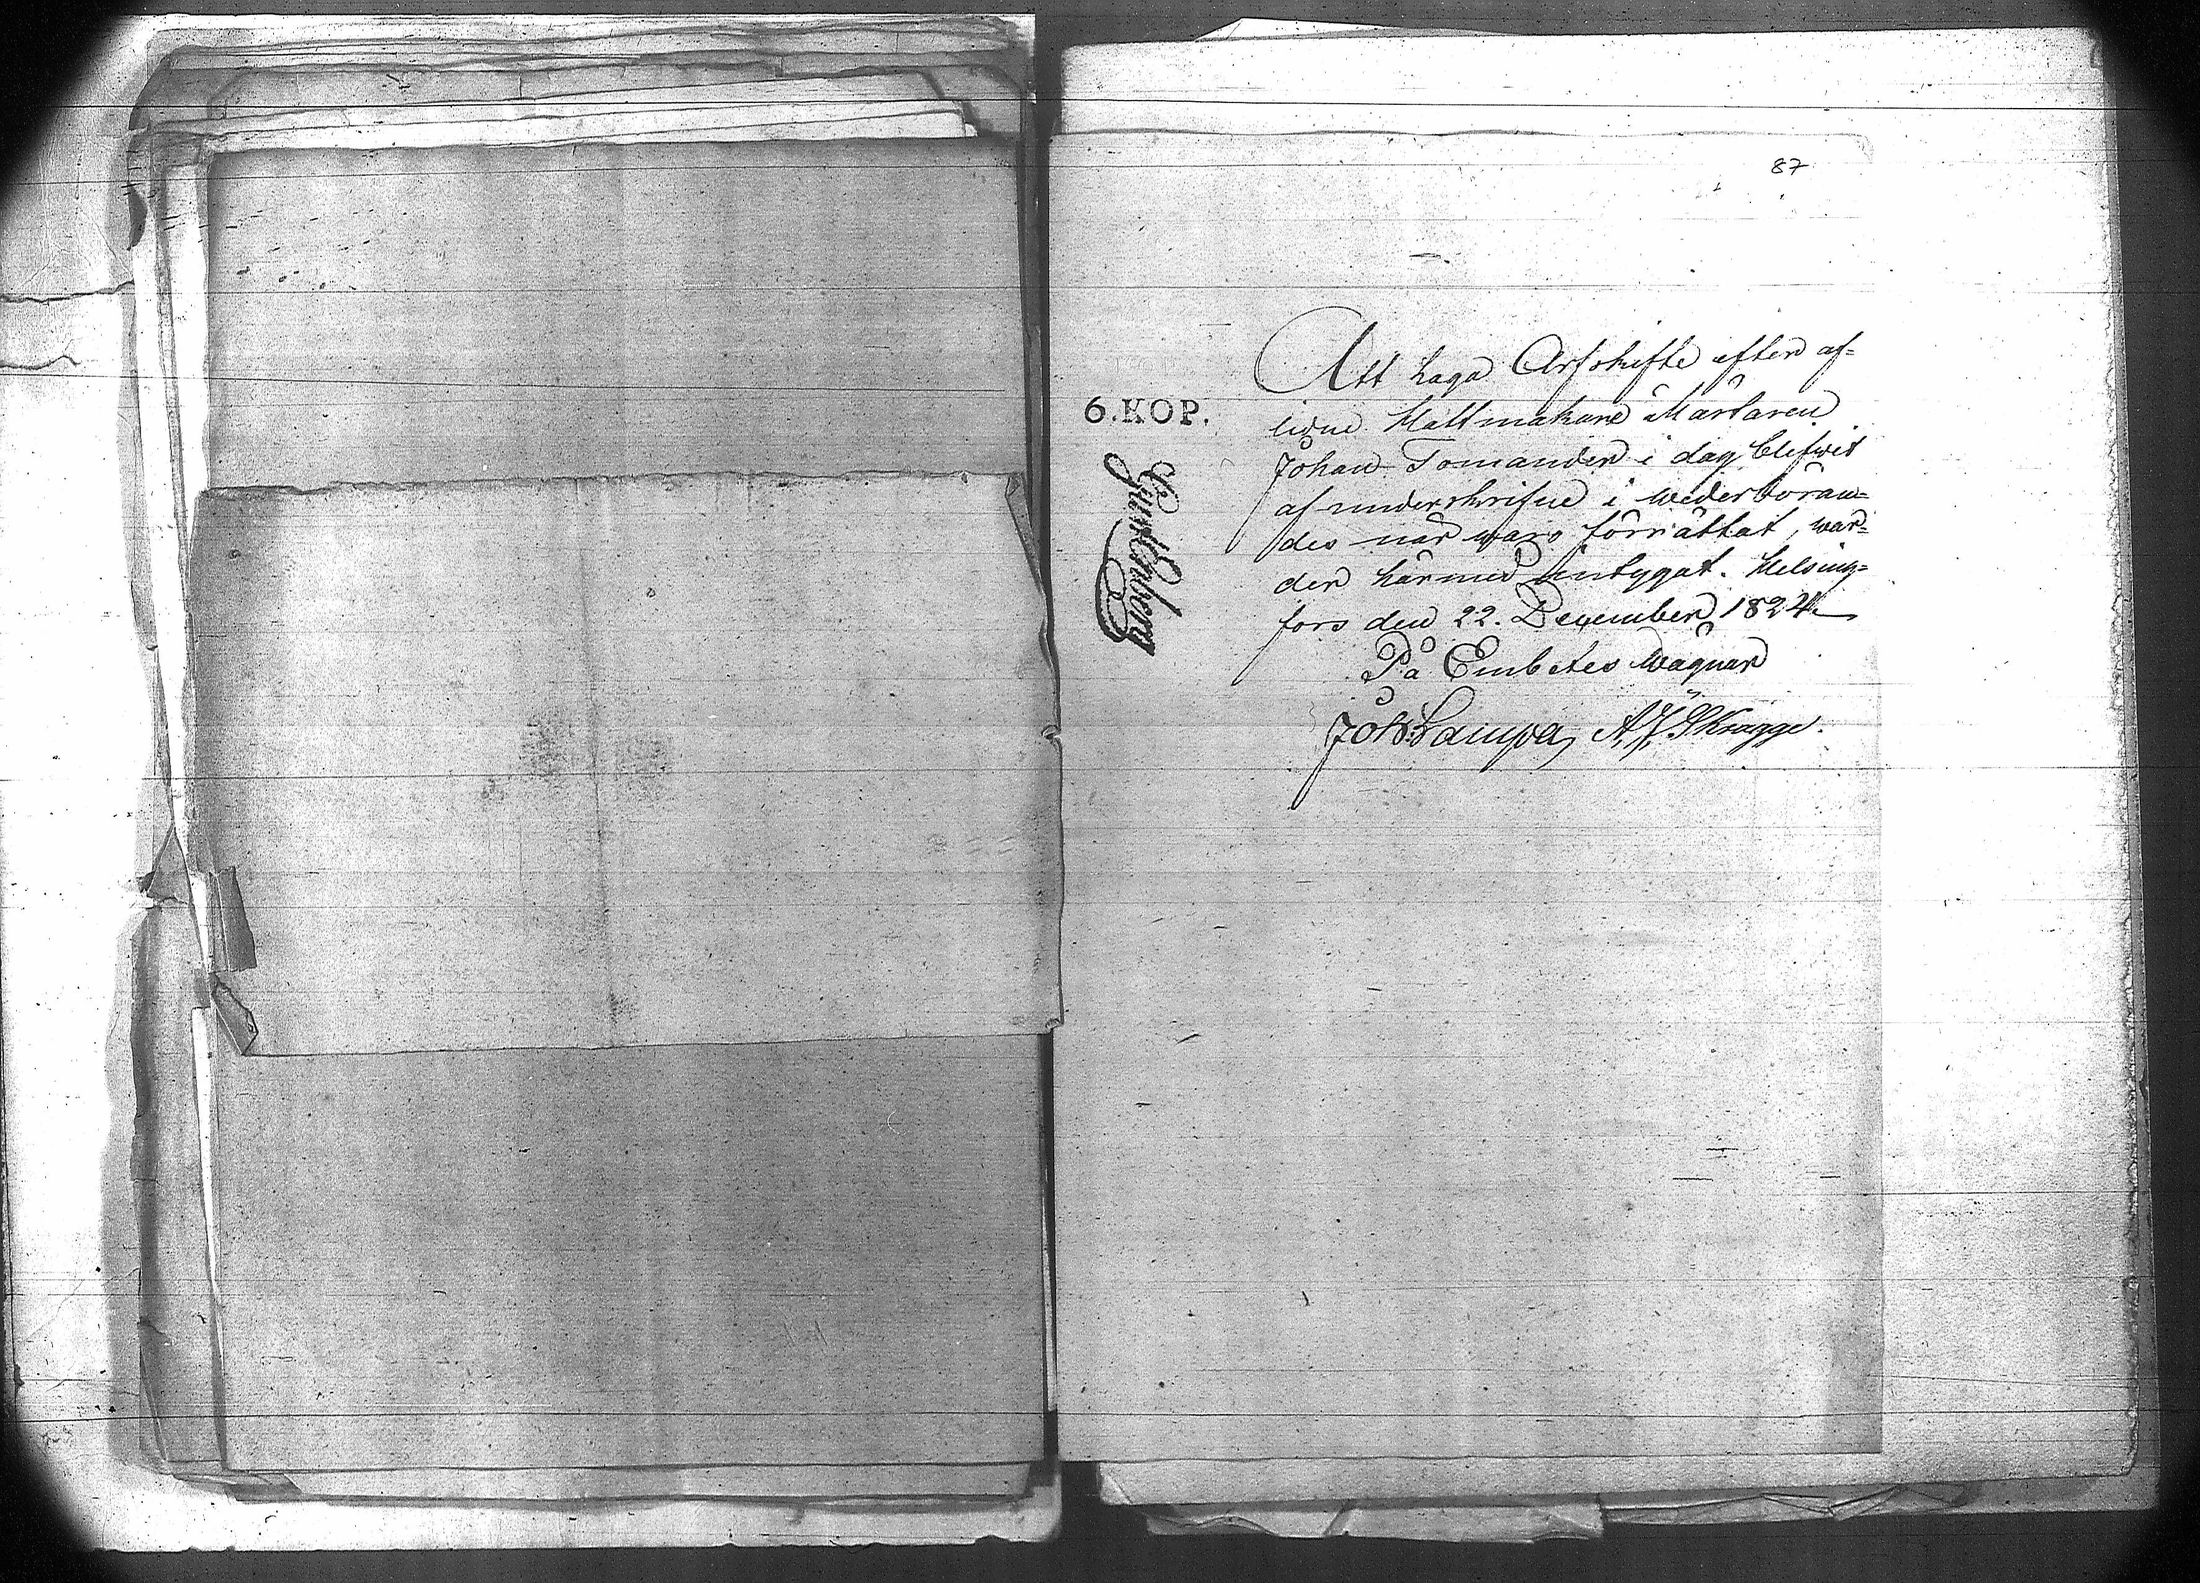 87
Att laga Arfskifte efter af-
lidne Hattmakare Mästaren
Johan Tomander i dag blifvit
af underskrifne i wederböran-
des när waro förrättat, war-
der härmed intygat. Helsing-
fors den 22. December 1824.
På Embetes wägnar
Joh: Lampa, A. J. Skragge.
6. KOP.